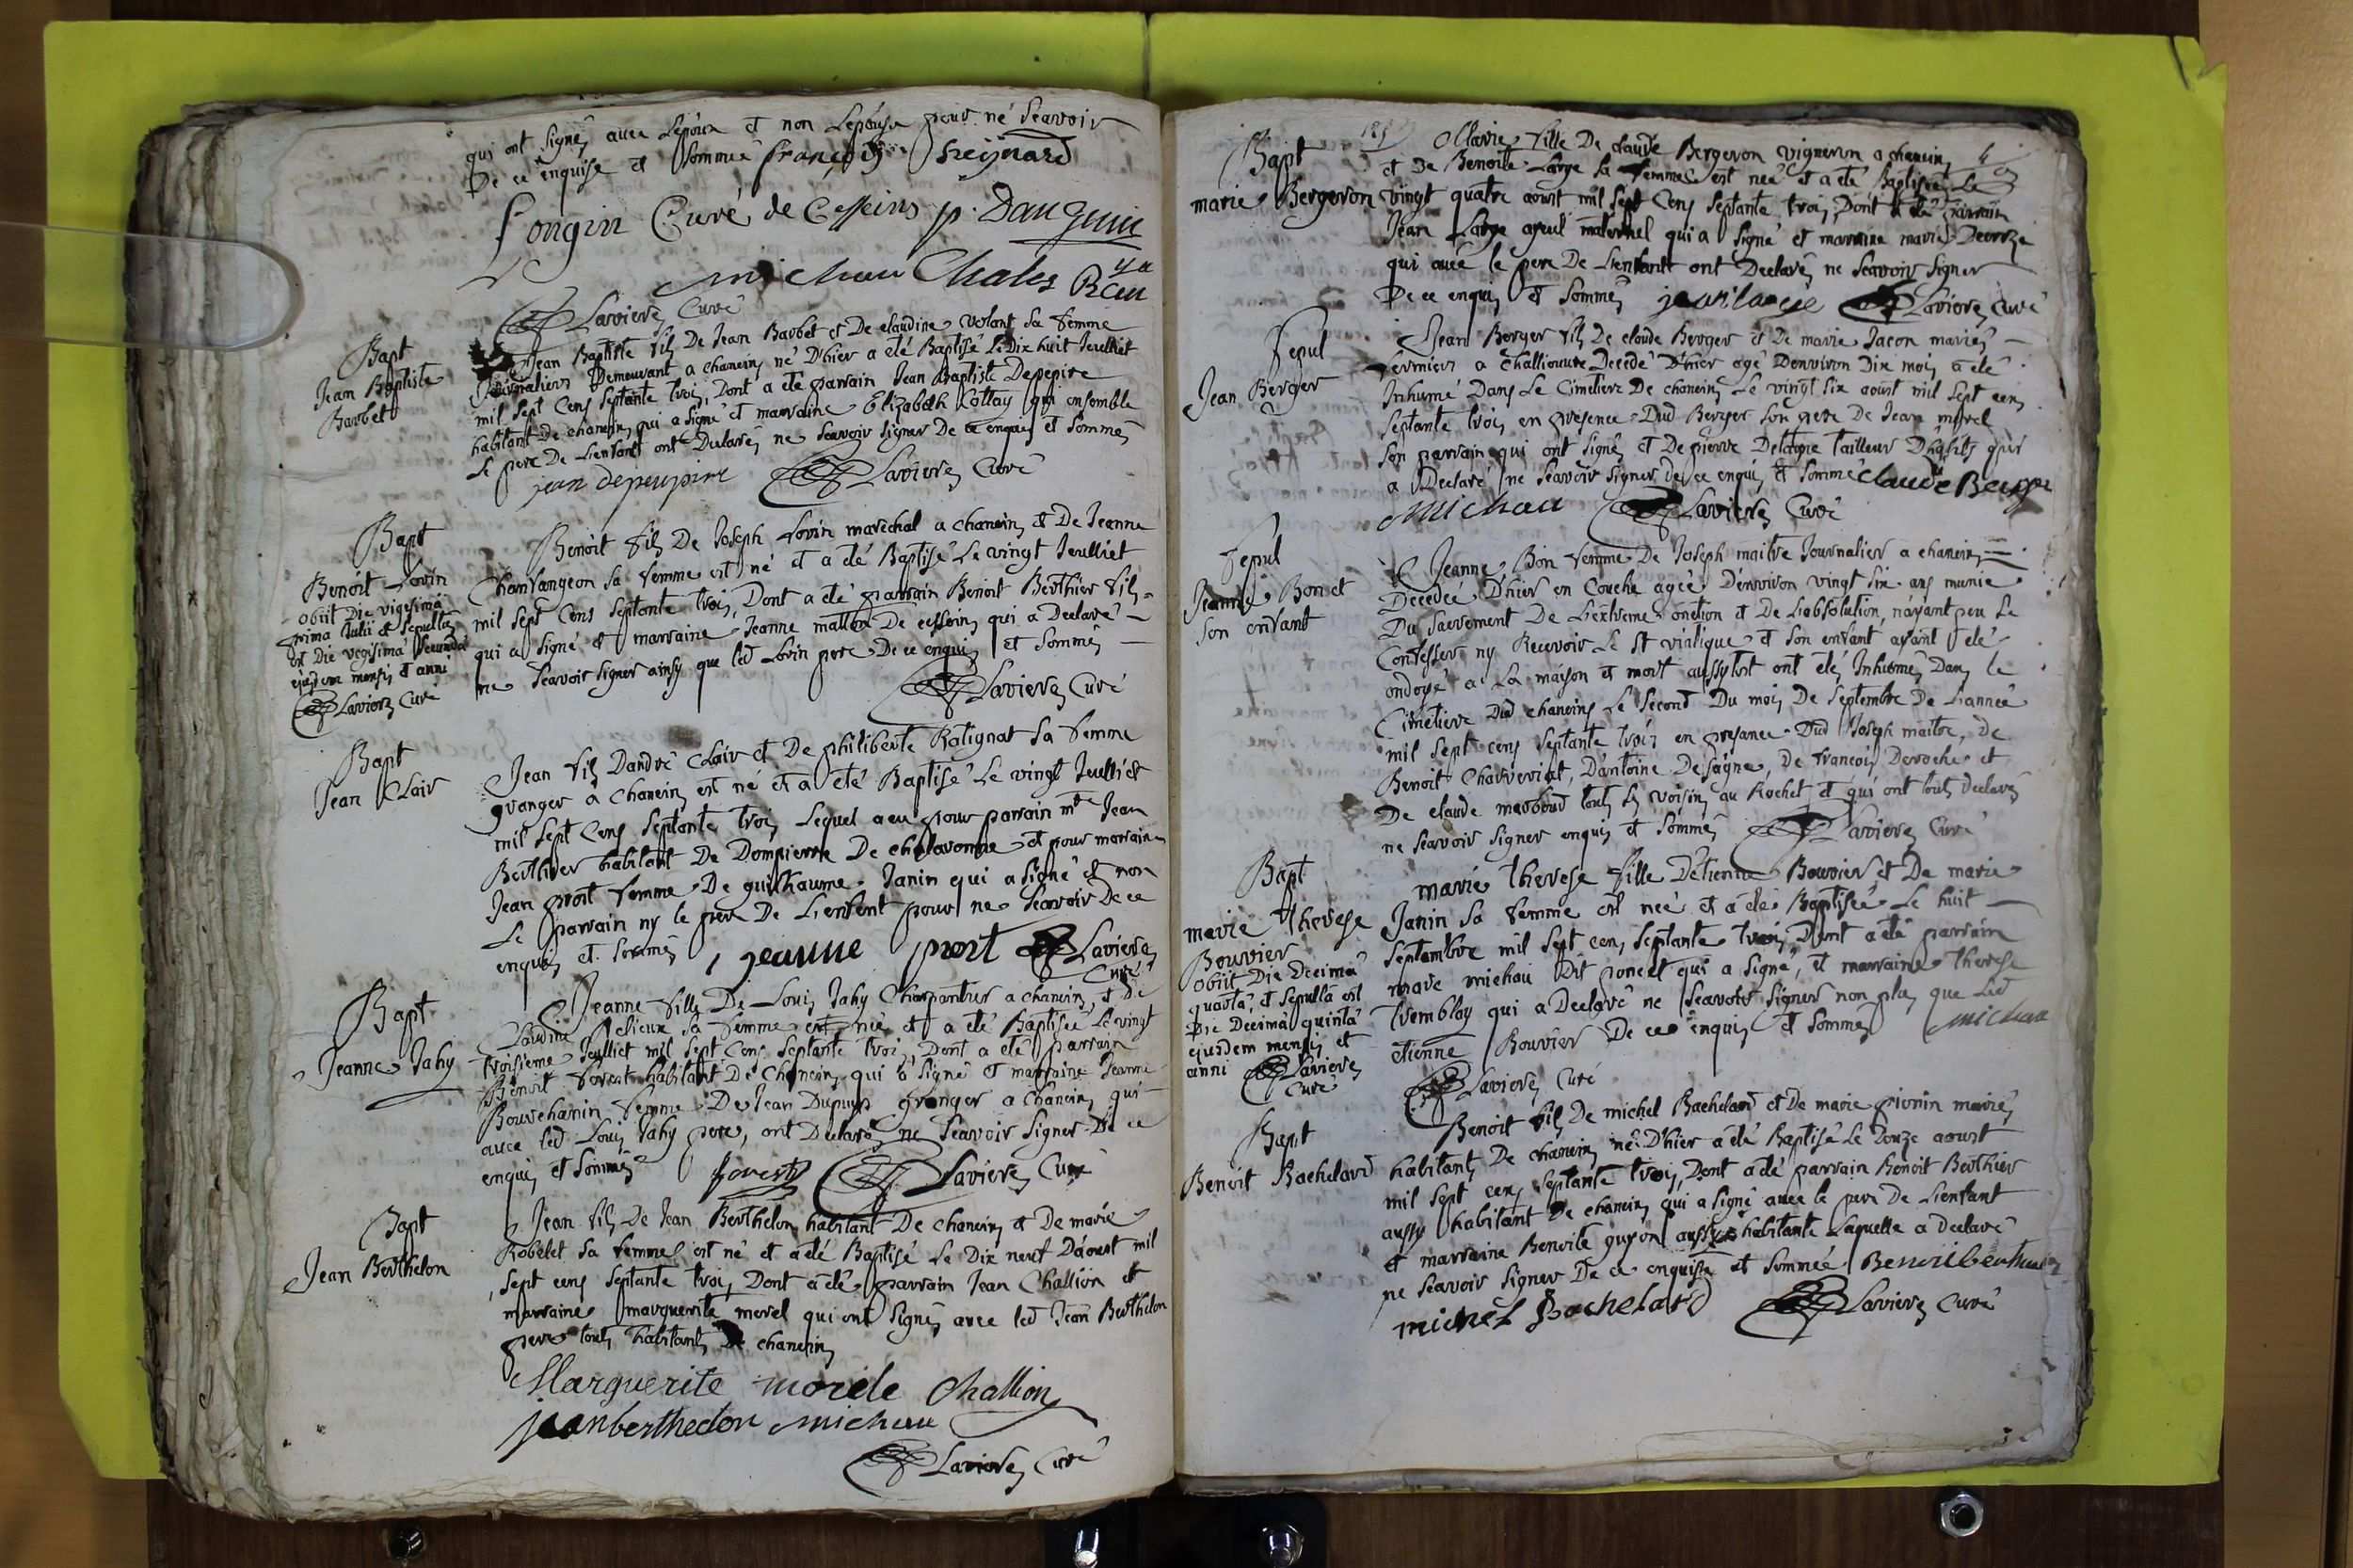 qui ont signés avec Lepoux et non Lepouse pour ne sçavoir
De ce enquise et Sommée françois Freynard
Longin Curé de Cesseins p. Danguin
michau Chales
Laviere Curé
Bapt
Jean Baptiste
Barbet
Jean Baptiste fils De Jean Barbet et De claudine Volant sa femme
Journaliers Demeurant a chaneins né D'hier a eté Baptisé le Dix huit Jeulliet
mil sept Cens septante trois, Dont a eté parrain Jean Baptiste Depepire
habitant De chaneins qui a signé et marraine Elizabeth Cottay qui ensemble
Le pere De Lenfant ont Declarés ne sçavoir signer De ce enquis et sommés
jean depeupire Laviere Curé
Bapt
Benoit Lovin
obiit Die vigesima
prima Julii et sepultus
est Die vegisima secunda
ejusdem mensis et anni
Laviere Curé
Benoit fils De Joseph Lovin maréchal a chaneins et De Jeanne
Chanfangeon sa femme est né et a eté Baptisé Le vingt Jeulliet
mil sept Cens septante trois, Dont a eté parrain Benoit Berthier fils
qui a signé et marraine Jeanne De cesseins qui a Declaré
ne sçavoir signer ainsy que led Lovin pere De ce enquis et sommés
Laviere Curé
Bapt
Jean Clair
Jean fils Dandré Clair et De philiberte Ratignat sa femme
granger a Chaneins est né et a eté Baptisé Le vingt Jeulliet
mil sept Cens septante trois Lequel a eu pour parrain mtre Jean
Berthier habitant De Dompierre De chalavonne et pour marraine
Jean prost femme De guilhaume Janin qui a signé et non
Le parrain ny le pere De Lenfent pour ne sçavoir De ce
enquis et sommés jeanne prort Laviere
Curé
Bapt
Jeanne Jahy
Jeanne fille De Louis Jahy Charpantier a chaneins et De
Claudine sa femme est née et a eté Baptisée Le vingt
troisieme Jeulliet mil sept Cens septante trois, Dont a eté parrain
Benoit forest habitant De Chaneins qui a signé et marraine Jeanne
Bouchanin femme De Jean Dupuys granger a Chaneins qui
avec led Louis Jahy pere, ont Declarés ne sçavoir signer De ce
enquis et sommés forest Laviere Curé
Bapt
Jean Berthelon
Jean fils De Jean Berthelon habitant De chaneins et De marie
Robelet sa femme est né et a eté Baptisé Le Dix neuf Daoust mil
sept cens septante trois Dont a eté parrain Jean Challion et
marraine marguerite morel qui ont signés avec led Jean Berthelon
pere touts habitants De chaneins
Marguerite morele Challion
jean berthelon michau
Laviere Curé
Bapt
marie Bergeron
Marie fille De claude Bergeron vigneron a chaneins
et De Benoite Large sa femme est née et a eté Baptisée Le
vingt quatre aoust mil sept Cens septante trois, Dont a eté parrain
Jean Large ayeul maternel qui a signé et marraine marie
qui avec le pere De Lenfant ont Declarés ne sçavoir signer
De ce enquis et sommés jean large Laviere Curé
Sepul
Jean Berger
Jean Berger fils De claude Berger et De marie Jacon mariés
fermiers a Challiouvre Decedé D'hier agé Denviron Dix mois a eté
Inhumé Dans Le Cimetiere De chaneins Le vingt six aoust mil sept cens
septante trois en presence Dud Berger son pere De Jean morel
son parrain qui ont signés et De pierre Delatre tailleur D'habits qui
a Declaré ne sçavoir signer De ce enquis et sommé Claude Berger
michau Laviere Curé
Sepul
Jeanne Bon et
son enfant
Jeanne Bon femme De Joseph maitre Journalier a chaneins
Decedée D'hier en Couche agée D'environ vingt six ans munie
Du sacrement De Lextreme onction et De Labsolution, nayant peu se
Confesser ny Recevoir Le St viatique et son enfant ayant eté
ondoyé a La maison et mort aussytost ont étés Inhumés Dans le
Cimetiere Dud chaneins Le second Du mois De septembre De Lannée
mil sept cens septante trois en presance Dud Joseph maitre, De
Benoit Charveriat, Dantoine Desaigne, De francois Deroche et
De claude marboud touts Les voisins au Rochet et qui ont touts Declarés
ne sçavoir signer enquis et sommés Laviere Curé
Bapt
marie therese
Bouvier
obiit Die Decima
quarta et sepulta est
Die Decima quinta
ejusdem mensis et
anni Laviere
Curé
marie therese fille D'etienne Bouvier et De marie
Janin sa femme est née et a eté Baptisée Le huit
septembre mil sept cens septante trois Dont a eté parrain
marc michau Dit poncet qui a signé, et marraine therese
tremblay qui a Declaré ne sçavoir signer non plus que Led
etienne Bouvier De ce enquis et sommés michau
Laviere Curé
Bapt
Benoit Bachelard
Benoit fils De michel Bachelard et De marie mariés
habitants De chaneins né D'hier a eté Baptisé Le Douze aoust
mil sept cens septante trois, Dont a eté parrain Benoit Berthier
aussy habitant De chaneins qui a signé avec le pere De Lienfant
et marraine Benoite guyon aussy habitante Laquelle a Declaré
ne sçavoir signer De ce enquise et sommée Benoit berthier
michel Bachelard Laviere Curé